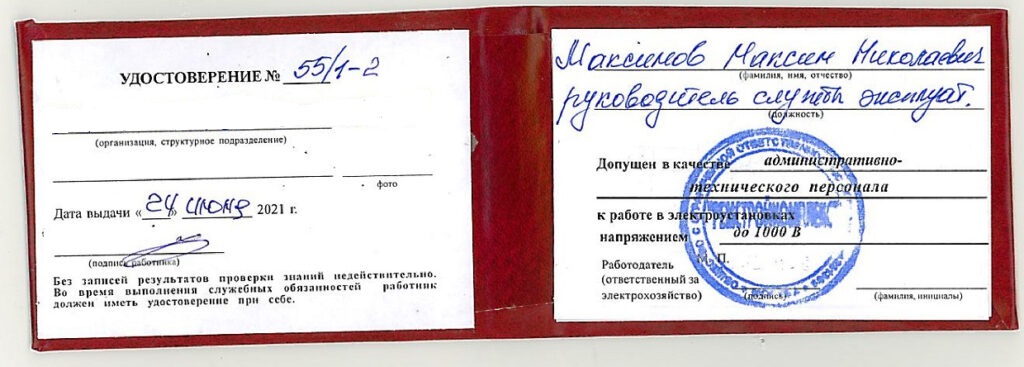 УДОСТОВЕРЕНИЕ № 55/1-2
(организация, структурное подразделение)
фото
Дата выдачи «24» июня 2021 г.
(подпись работника)
Без записей результатов проверки знаний недействительно.
Во время выполнения служебных обязанностей работник
должен иметь удостоверение при себе.
Максимов Максим Николаевич
(фамилия, имя, отчество)
руководитель службы эксплуат.
(должность)
Допущен в качестве административно-
технического персонала
к работе в электроустановках
напряжением до 1000 В
М.П.
Работодатель
(ответственный за
электрохозяйство)
(подпись)
(фамилия, инициалы)